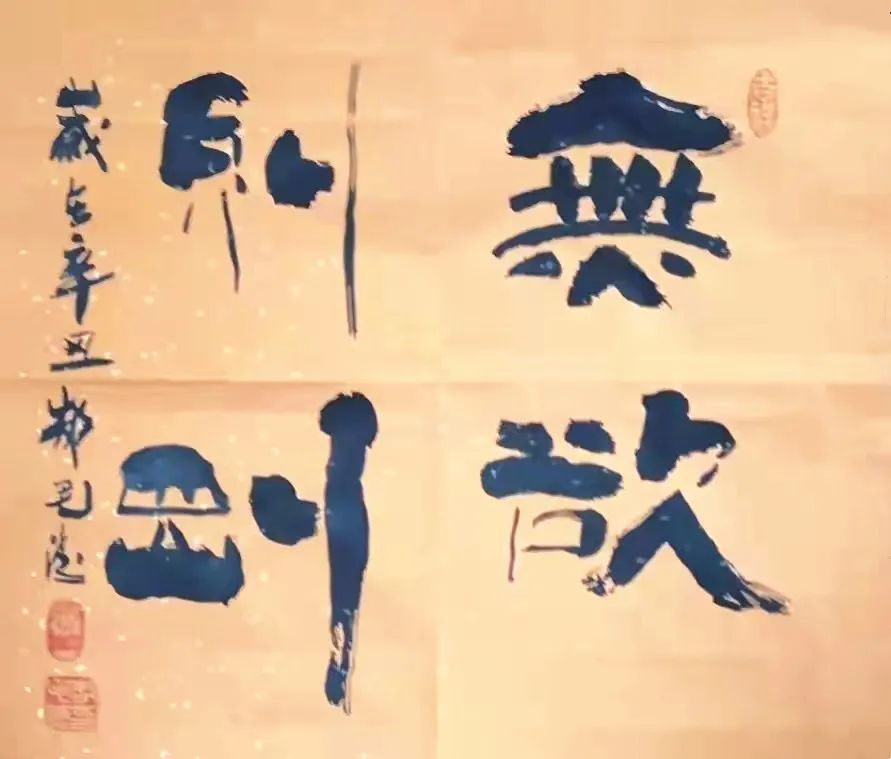 無欲
則剛
歲在辛丑